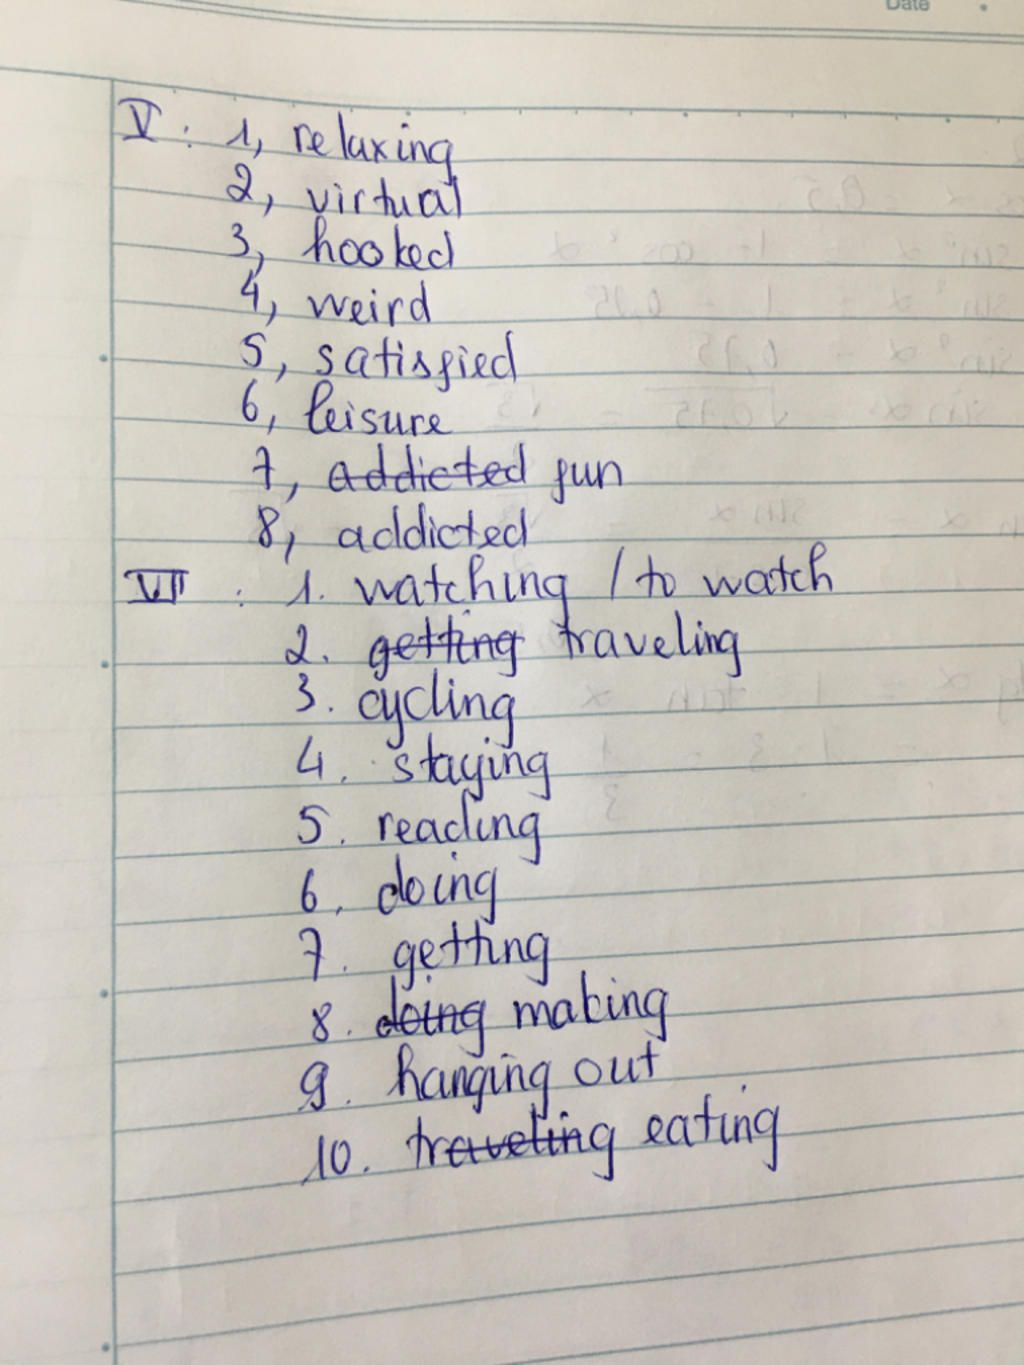 Date
V : 1, relaxing
2, virtual
3, hooked
4, weird
5, satisfied
6, leisure
7, addicted fun
8, addicted
VI : 1. watching / to watch
2. getting traveling
3. cycling
4. staying
5. reading
6. doing
7. getting
8. doing making
9. hanging out
10. traveling eating